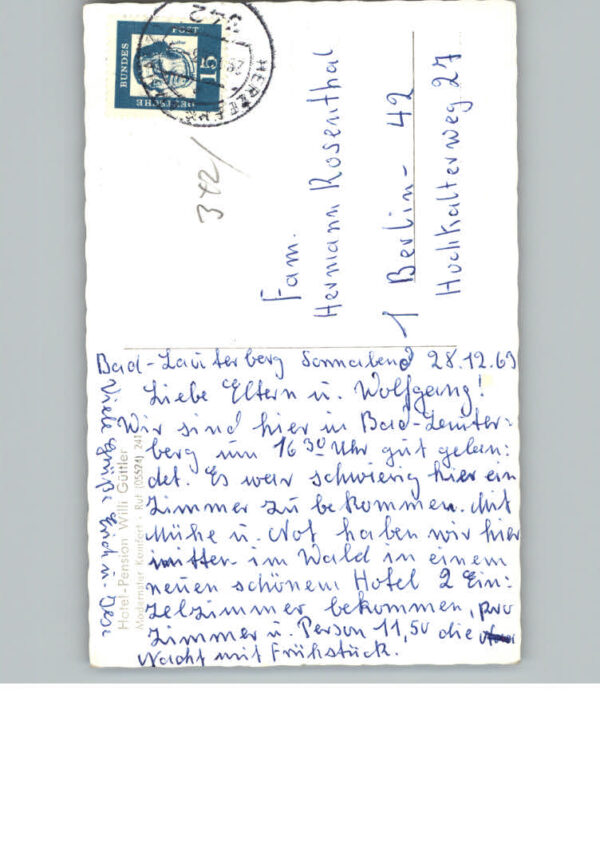 Bad-Lauterberg Sonnabend 28.12.63
Liebe Eltern u. Wolfgang!
Wir sind hier in Bad-Lauter-
berg um 16 30 Uhr gut gelan:
det. Es war schwierig hier ein
Zimmer zu bekommen. Mit
Mühe u. Not haben wir hier
mitten im Wald in einem
neuen schönem Hotel 2 Ein:
zelzimmer bekommen, pro
Zimmer u. Person 11,50 die
Nacht mit Frühstück.
Viele Grüße Erich u.
Hotel-Pension Willi Güttler
Modernster Komfort · Ruf (05524) 241
Fam.
Hermann Rosenthal
1 Berlin - 42
Hochkalterweg 27
342/
DEUTSCHE
BUNDES
POST
15
342